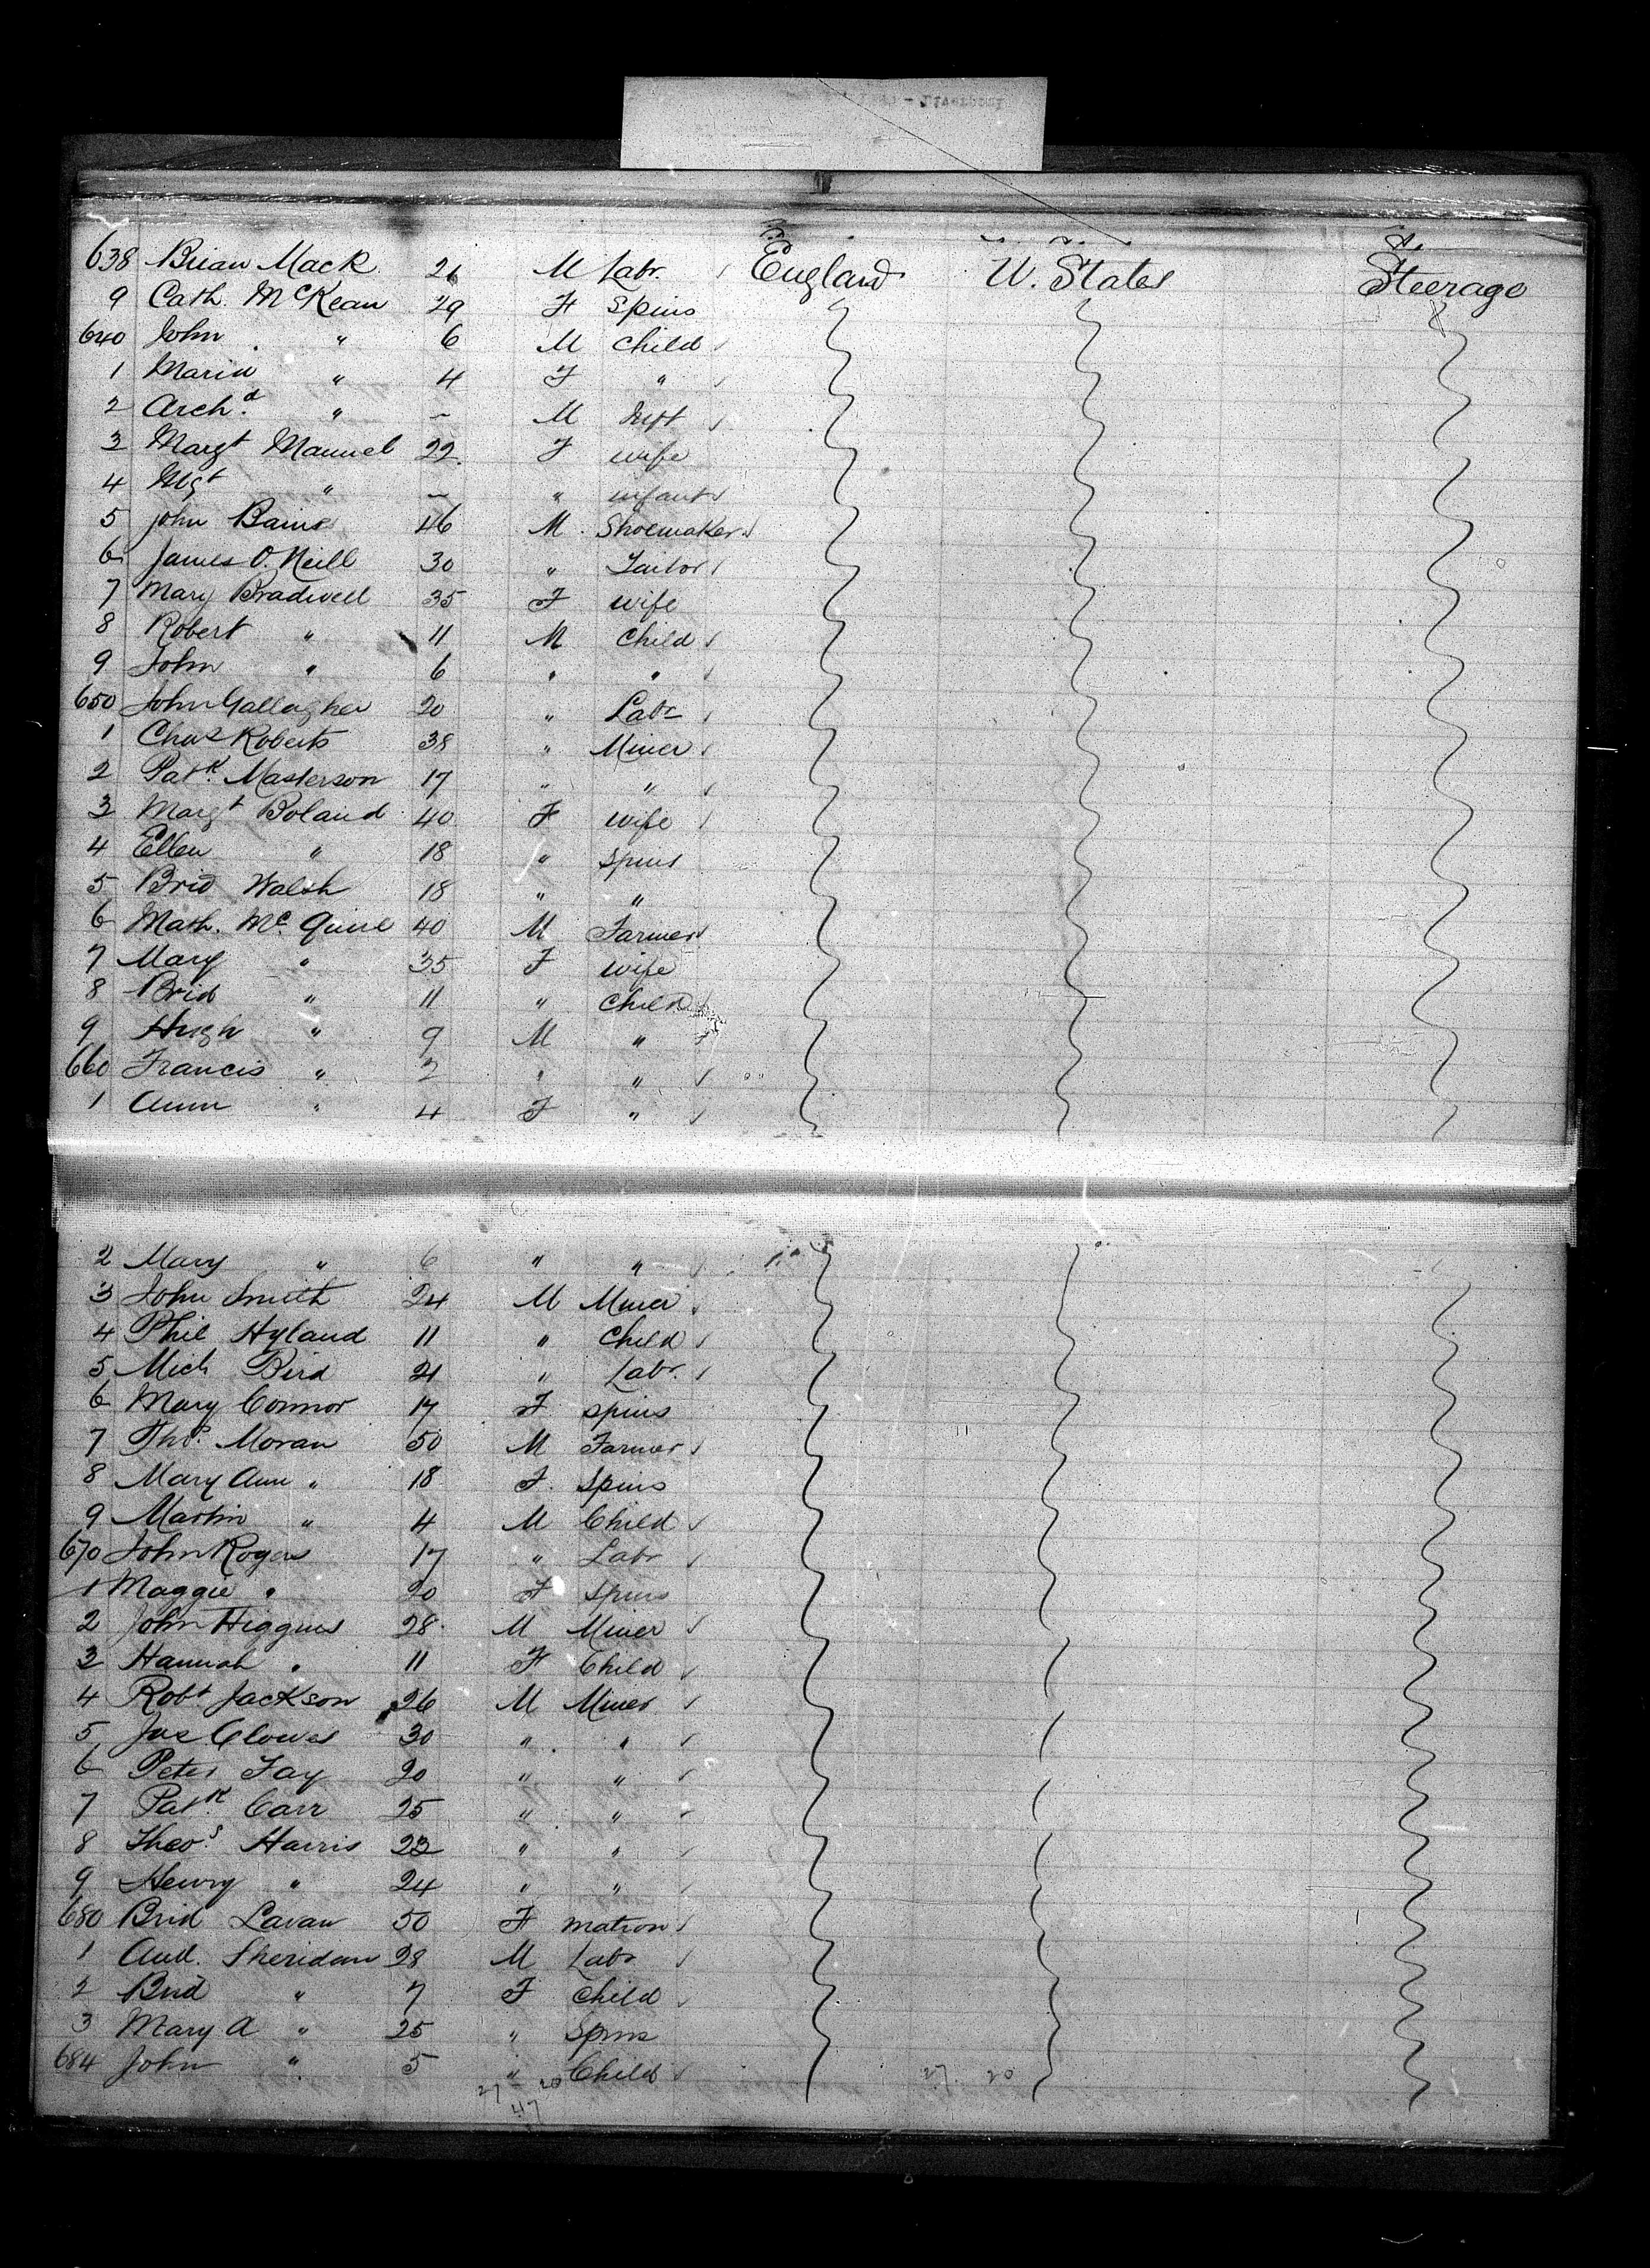 638 Brian Mack 26 M Labr. England U. States Steerage
9 Cath. McKean 29 F Spins
640 John " 6 M Child
1 Maria " 4 F "
2 Archd. " – M Inft
3 Margt Manuel 22 F wife
4 Mgt " – " infant
5 John Baines 46 M Shoemaker
6 James O'Neill 30 " Tailor
7 Mary Bradwell 35 F wife
8 Robert " 11 M Child
9 John " 6 " "
650 John Gallagher 20 " Labr
1 Chas Roberts 38 " Miner
2 Patk. Masterson 17 " "
3 Margt Boland 40 F wife
4 Ellen " 18 " Spins
5 Brid Walsh 18 " "
6 Math. Mc Quire 40 M Farmer
7 Mary " 35 F wife
8 Brid " 11 " Child
9 Hugh " 9 M "
660 Francis " " " 
1 Ann " 4 F "
2 Mary " 6 " "
3 John Smith 24 M Miner
4 Phil Hyland 11 " Child
5 Mich Bird 21 " Labr.
6 Mary Connor 17 F Spins
7 Thos. Moran 50 M Farmer
8 Mary Ann " 18 F. Spins
9 Martin " 4 M Child
670 John Rogers 17 " Labr
1 Maggie " 20 F Spins
2 John Higgins 28 M Miner
3 Hannah " 11 F Child
4 Robt. Jackson 26 M Miner
5 Jas Clowes 30 " "
6 Peter Fay 20 " "
7 Patk. Carr 25 " "
8 Theos. Harris 23 " "
9 Henry " 24 " "
680 Brid Lavan 50 F matron
1 And. Sheridan 28 M Labr
2 Brid " 7 F Child
3 Mary A " 25 " Spins
684 John " 5 " Child
27 20 27 20
47